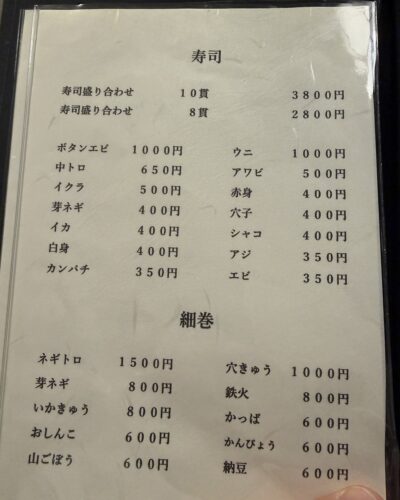 寿司
寿司盛り合わせ 10貫 3800円
寿司盛り合わせ 8貫 2800円
ボタンエビ 1000円
中トロ 650円
イクラ 500円
芽ネギ 400円
イカ 400円
白身 400円
カンパチ 350円
ウニ 1000円
アワビ 500円
赤身 400円
穴子 400円
シャコ 400円
アジ 350円
エビ 350円
細巻
ネギトロ 1500円
芽ネギ 800円
いかきゅう 800円
おしんこ 600円
山ごぼう 600円
穴きゅう 1000円
鉄火 800円
かっぱ 600円
かんぴょう 600円
納豆 600円